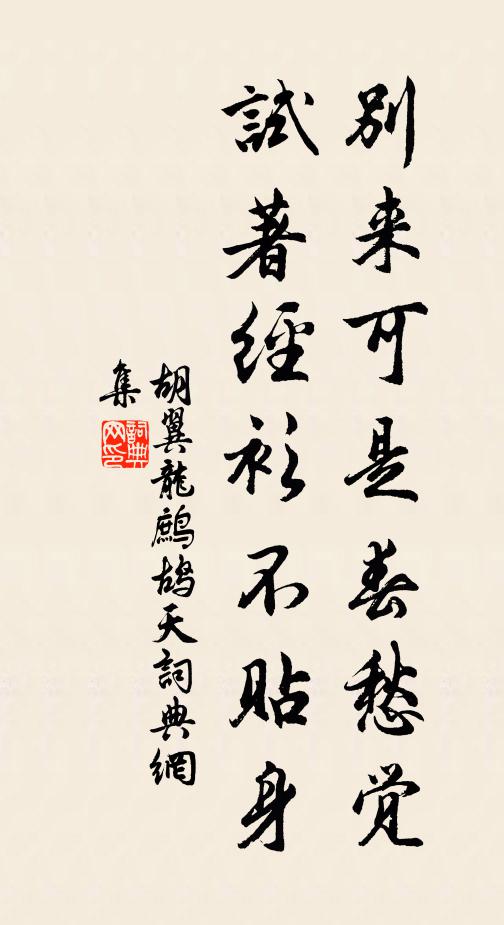 別来可是春愁觉
試著經衫不貼身
胡翼龍鷓鴣天詞典網
集
詞典
网印